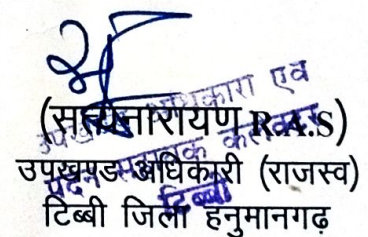 (सत्यनारायण R.A.S)
उपखण्ड अधिकारी (राजस्व)
टिब्बी जिला हनुमानगढ़
उपखण्ड अधिकारी एवं
पदेन सहायक कलेक्टर
टिब्बी